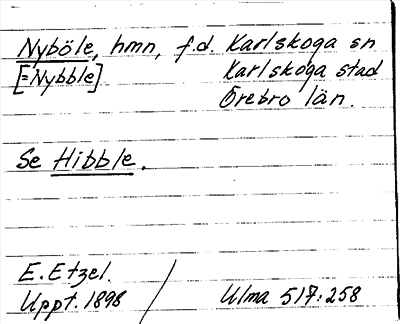 Nyböle, hmn, f.d. Karlskoga sn
[=Nybble] Karlskoga stad
Örebro län.
Se Hibble.
E. Etzel.
Uppt. 1898 / Ulma 517:258